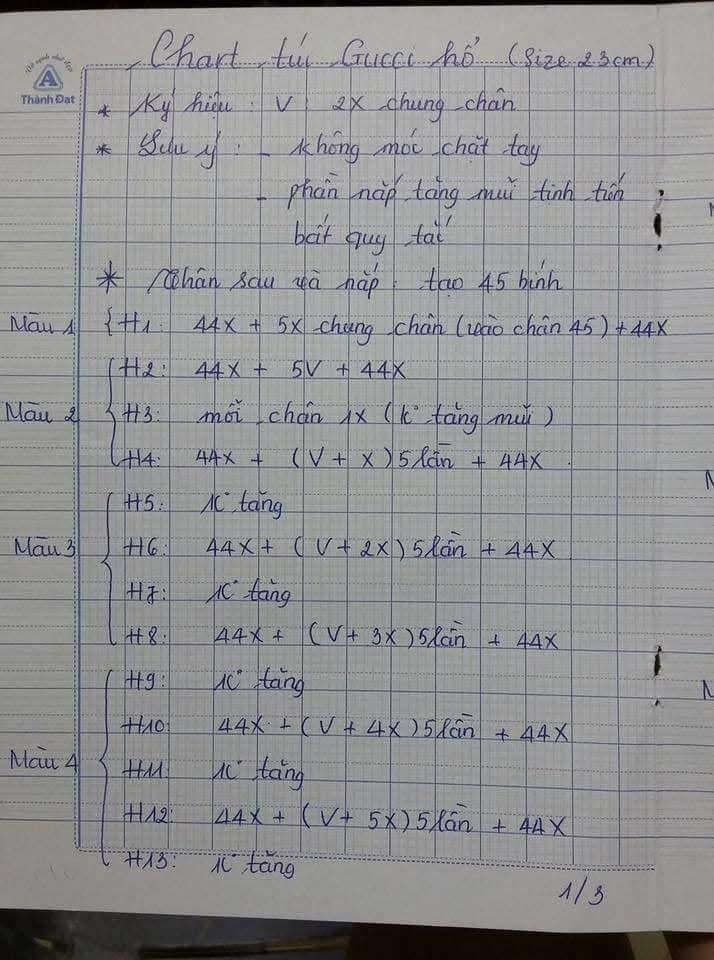 Chart túi Gucci hổ (size 23cm)
Thành Đạt
* Ký hiệu : V : 2X chung chân
* Lưu ý : - không móc chặt tay
- phần nắp tăng mũi tịnh tiến
bất quy tắc
* Thân sau và nắp : tạo 45 bính
Màu 1 { H1 : 44X + 5X chung chân (vào chân 45) + 44X
H2 : 44X + 5V + 44X
Màu 2 { H3 : mỗi chân 1X (K° tăng mũi)
H4 : 44X + (V + X) 5 lần + 44X
H5 : K° tăng
Màu 3 { H6 : 44X + (V + 2X) 5 lần + 44X
H7 : K° tăng
H8 : 44X + (V + 3X) 5 lần + 44X
H9 : K° tăng
H10 : 44X + (V + 4X) 5 lần + 44X
Màu 4 { H11 : K° tăng
H12 : 44X + (V + 5X) 5 lần + 44X
H13 : K° tăng
1/3